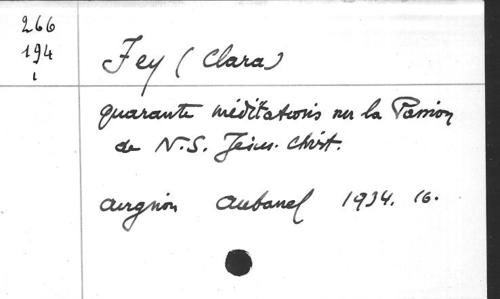 266
194
1
Fey (Clara)
quarante méditations sur la Passion
de N.S. Jésus-Christ.
Avignon Aubanel 1934. 16.